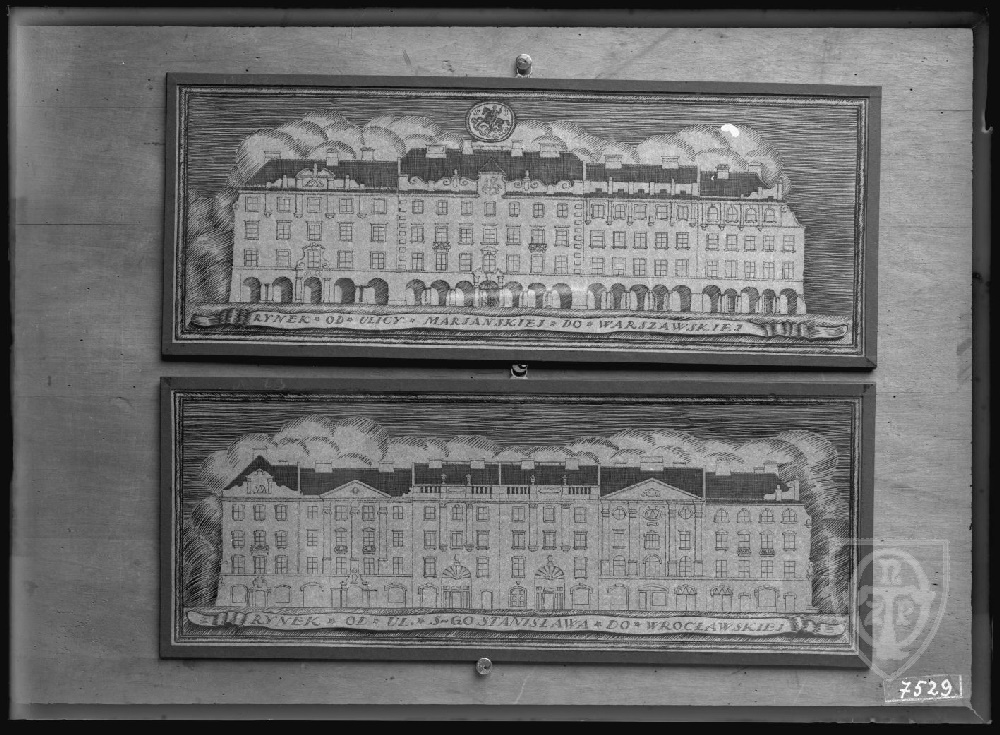 RYNEK * OD * ULICY * MARJAŃSKIEJ * DO * WARSZAWSKIEJ
RYNEK * OD * UL * S~GO STANISŁAWA * DO * WROCŁAWSKIEJ
7529